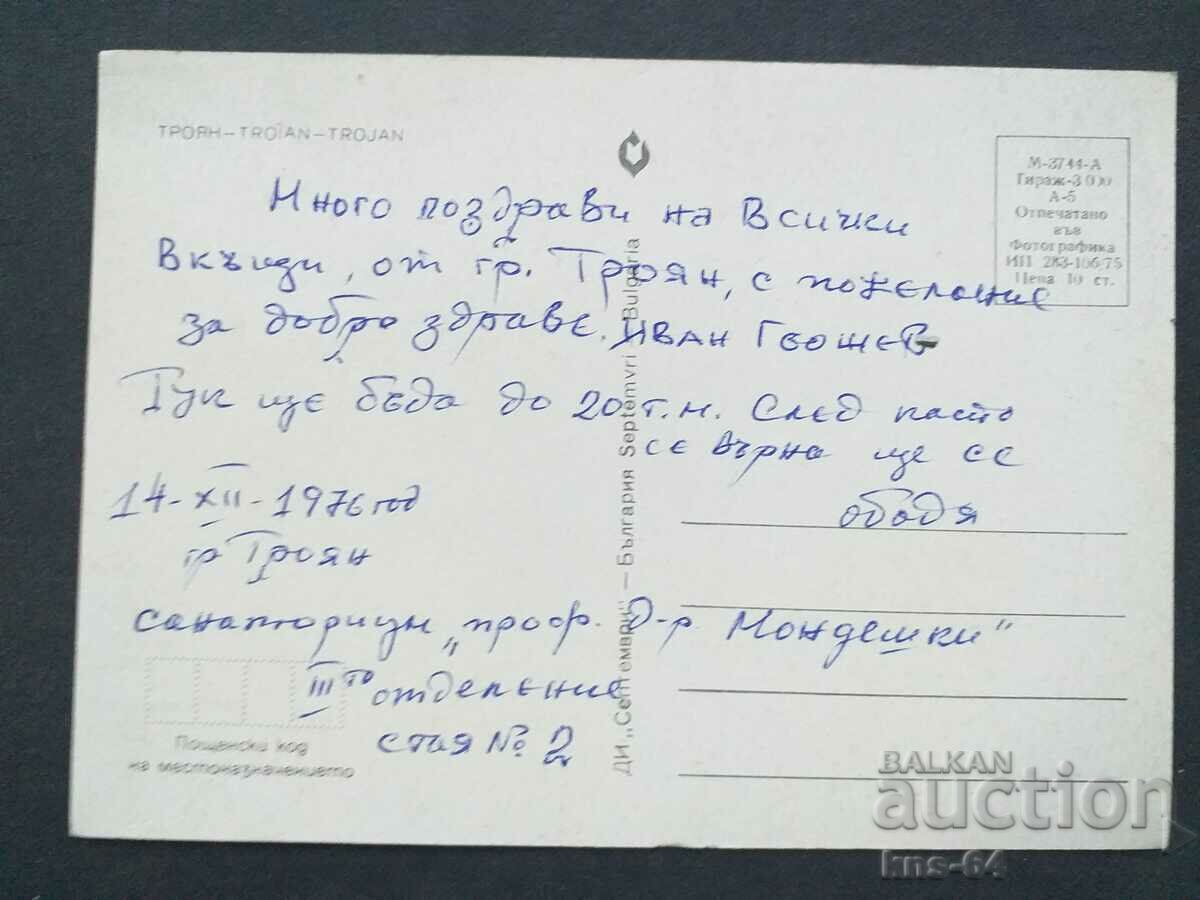 ТРОЯН – TROÏAN – TROJAN
М-3744-А
Тираж-3 000
А-5
Отпечатано
във
Фотографика
ИП 283-106/75
Цена 10 ст.
Много поздрави на Всички
Вкъщи, от гр. Троян, с пожелание
за добро здраве. Иван
Тук ще бъда до 20 т.м. След като
се върна ще се
обадя
14-XII-1976 год
гр Троян
санаториум „проф. Д-р
III то отделение
стая № 2
Пощенски код
на местоназначението
ДИ „Септември" – България Septemvri Bulgaria
BALKAN
auction
kns-64